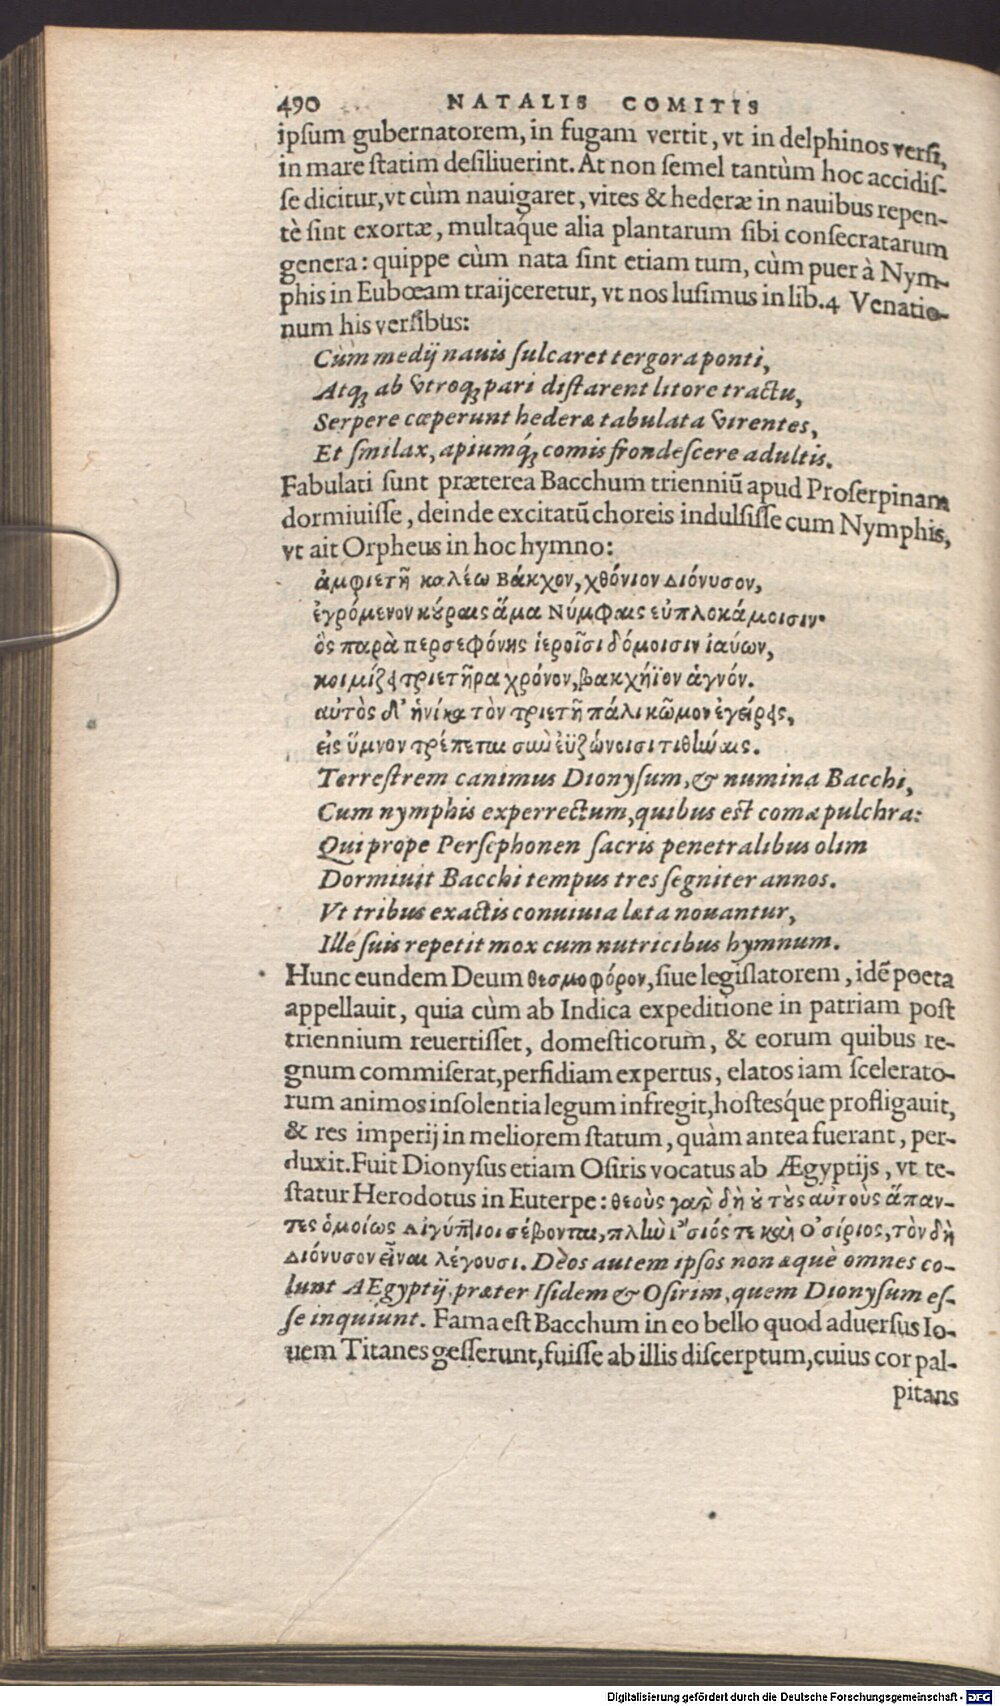 490 NATALIS COMITIS
ipſum gubernatorem, in fugam vertit, vt in delphinos verſi,
in mare ſtatim deſiliuerint. At non ſemel tantùm hoc accidiſ-
ſe dicitur, vt cùm nauigaret, vites & hederæ in nauibus repen-
tè ſint exortæ, multáque alia plantarum ſibi conſecratarum
genera: quippe cùm nata ſint etiam tum, cùm puer à Nym-
phis in Eubœam traijceretur, vt nos luſimus in lib.4 Venatio-
num his verſibus:
Cùm medij nauis ſulcaret tergora ponti,
Atq; ab vtroq; pari diſtarent litore tractu,
Serpere cœperunt hederæ tabulata virentes,
Et ſmilax, apiumq́; comis frondeſcere adultis.
Fabulati ſunt præterea Bacchum trienniũ apud Proſerpinam
dormiuiſſe, deinde excitatũ choreis indulſiſſe cum Nymphis,
vt ait Orpheus in hoc hymno:
ἀμφιετῆ καλέω Βάκχον, χθόνιον Διόνυσον,
ἐγρόμενον κύραις ἅμα Νύμφαις εὐπλοκάμοισιν·
ὃς παρὰ Περσεφόνης ἱεροῖσι δόμοισιν ἰαύων,
κοιμίζει τριετῆρα χρόνον, βακχήϊον ἁγνόν.
αὐτὸς δ' ἡνίκα τὸν τριετῆ πάλι κῶμον ἐγείρει,
εἰς ὕμνον τρέπεται σὺν ἐϋζώνοισι τιθήναις.
Terreſtrem canimus Dionyſum, & numina Bacchi,
Cum nymphis experrectum, quibus eſt coma pulchra:
Qui prope Perſephonen ſacris penetralibus olim
Dormiuit Bacchi tempus tres ſegniter annos.
Vt tribus exactis conuiuia læta nouantur,
Ille ſuis repetit mox cum nutricibus hymnum.
Hunc eundem Deum θεσμοφόρον, ſiue legiſlatorem, idẽ poeta
appellauit, quia cùm ab Indica expeditione in patriam poſt
triennium reuertiſſet, domeſticorum, & eorum quibus re-
gnum commiſerat, perfidiam expertus, elatos iam ſcelerato-
rum animos inſolentia legum infregit, hoſtéſque profligauit,
& res imperij in meliorem ſtatum, quàm antea fuerant, per-
duxit. Fuit Dionyſus etiam Oſiris vocatus ab Ægyptijs, vt te-
ſtatur Herodotus in Euterpe: θεοὺς γὰρ δὴ ὐ τὺς αὐτοὺς ἅπαν-
τες ὁμοίως Αἰγύπτιοι σέβονται, πλὴν Ἴσιός τε καὶ Ὀσίριος, τὸν δὴ
Διόνυσον εἶναι λέγουσι. Deos autem ipſos non æquè omnes co-
lunt AEgyptij, præter Iſidem & Oſirim, quem Dionyſum eſ-
ſe inquiunt. Fama eſt Bacchum in eo bello quod aduerſus Io-
uem Titanes geſſerunt, fuiſſe ab illis diſcerptum, cuius cor pal-
pitans
Digitalisierung gefördert durch die Deutsche Forschungsgemeinschaft - DFG